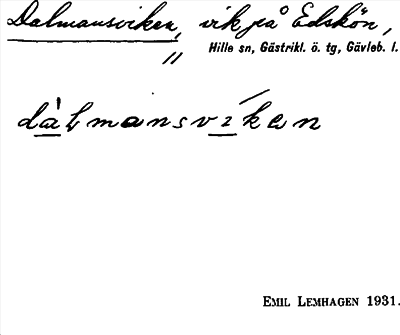 Dalmansviken, vik på Edskön,
Hille sn, Gästrikl. ö. tg, Gävleb. l.
"
dàlmansvíken
EMIL LEMHAGEN 1931.